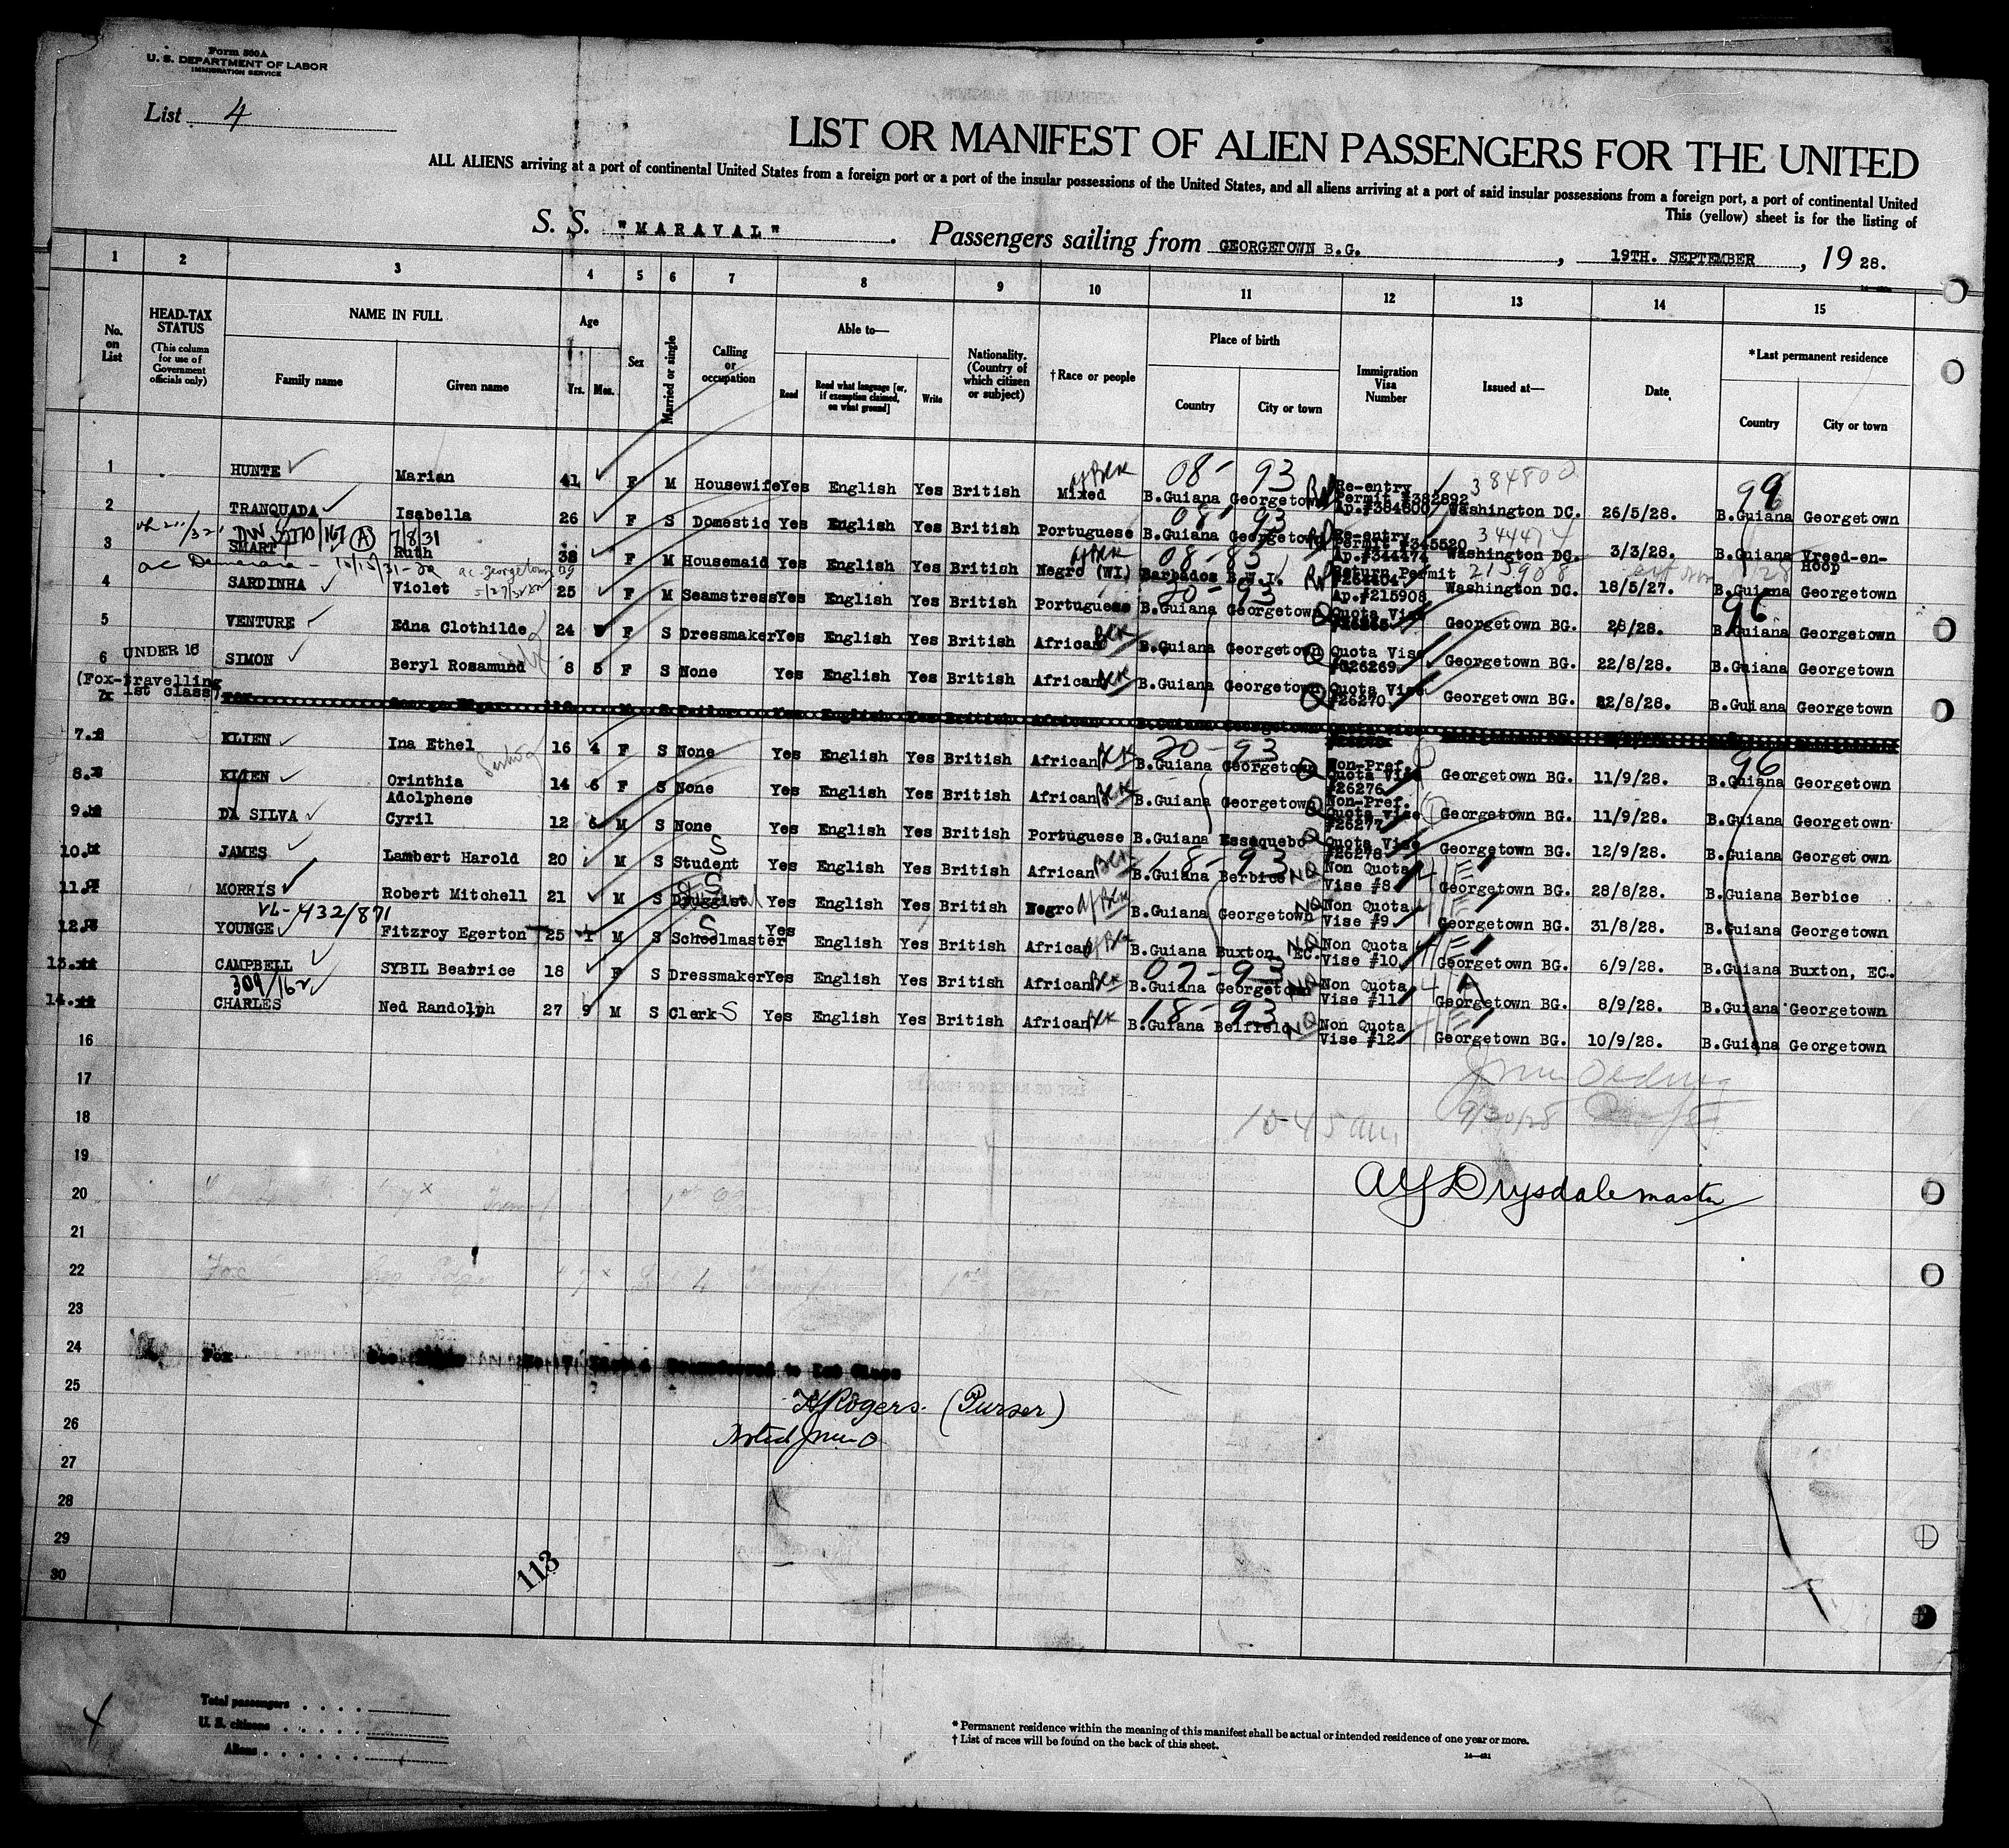 Form 500A
U. S. DEPARTMENT OF LABOR
IMMIGRATION SERVICE
List 4
LIST OR MANIFEST OF ALIEN PASSENGERS FOR THE UNITED
ALL ALIENS arriving at a port of continental United States from a foreign port or a port of the insular possessions of the United States, and all aliens arriving at a port of said insular possessions from a foreign port, a port of continental United
This (yellow) sheet is for the listing of
S. S. "MARAVAL" Passengers sailing from GEORGETOWN B.G., 19TH. SEPTEMBER, 19 28.
1 2 3 4 5 6 7 8 9 10 11 12 13 14 15
No. on List
HEAD-TAX STATUS (This column for use of Government officials only)
NAME IN FULL
Family name Given name
Age Yrs. Mos.
Sex
Married or single
Calling or occupation
Able to—
Read Read what language [or, if exemption claimed, on what ground] Write
Nationality. (Country of which citizen or subject)
†Race or people
Place of birth
Country City or town
Immigration Visa Number
Issued at—
Date
*Last permanent residence
Country City or town
1 HUNTE Marian 41 F M Housewife Yes English Yes British Mixed B.Guiana Georgetown Re-entry Permit #382892 Ap.#384800 Washington DC. 26/5/28. B.Guiana Georgetown
08- 93 384800 99
2 TRANQUADA Isabella 26 F S Domestic Yes English Yes British Portuguese B.Guiana Georgetown Re-entry Permit #345520 Ap.#344474 Washington DC. 3/3/28. B.Guiana Vreed-en-Hoop
08- 93 344474
DW 55770/167 (A) 7/8/31
3 SMART Ruth 38 F M Housemaid Yes English Yes British Negro (WI) Barbados B.W.I. Return Permit Ap.#215908 Washington DC. 18/5/27. B.Guiana Georgetown
08-85 215908
ac Demerara - 10/15/31-
ac georgetown
4 SARDINHA Violet 25 F M Seamstress Yes English Yes British Portuguese B.Guiana Georgetown Quota Vise Georgetown BG. B.Guiana Georgetown
20-93 96
5 VENTURE Edna Clothilde 24 F S Dressmaker Yes English Yes British African Blk B.Guiana Georgetown Quota Vise #26269 Georgetown BG. 22/8/28. B.Guiana Georgetown
6 UNDER 16 SIMON Beryl Rosamund 8 5 F S None Yes English Yes British African Blk B.Guiana Georgetown Quota Vise #26270 Georgetown BG. 22/8/28. B.Guiana Georgetown
(Fox-travelling 1st class)
7x Fox George Edgar M S Tailor Yes English Yes British African B.Guiana Georgetown
7. KLIEN Ina Ethel 16 4 F S None Yes English Yes British African Blk B.Guiana Georgetown Non-Pref. Quota Vise #26276 Georgetown BG. 11/9/28. B.Guiana Georgetown
20-93 96
8. KLIEN Orinthia Adolphene 14 6 F S None Yes English Yes British African Blk B.Guiana Georgetown Non-Pref. Quota Vise #26277 Georgetown BG. 11/9/28. B.Guiana Georgetown
9. DA SILVA Cyril 12 6 M S None Yes English Yes British Portuguese B.Guiana Essequebo Quota Vise #26278 Georgetown BG. 12/9/28. B.Guiana Georgetown
10. JAMES Lambert Harold 20 M S Student Yes English Yes British African Blk B.Guiana Berbice Non Quota Vise #8 Georgetown BG. 28/8/28. B.Guiana Berbice
18-93 NQ
11. MORRIS Robert Mitchell 21 M S Druggist Yes English Yes British Negro Af Blk B.Guiana Georgetown Non Quota Vise #9 Georgetown BG. 31/8/28. B.Guiana Georgetown
VL-432/871
12. YOUNGE Fitzroy Egerton 25 1 M S Schoolmaster Yes English Yes British African B.Guiana Buxton, EC. Non Quota Vise #10 Georgetown BG. 6/9/28. B.Guiana Buxton, EC.
13. CAMPBELL SYBIL Beatrice 18 F S Dressmaker Yes English Yes British African Blk B.Guiana Georgetown Non Quota Vise #11 Georgetown BG. 8/9/28. B.Guiana Georgetown
07-93
309/162
14. CHARLES Ned Randolph 27 9 M S Clerk Yes English Yes British African Blk B.Guiana Belfield Non Quota Vise #12 Georgetown BG. 10/9/28. B.Guiana Georgetown
18-93
16
17
18
10-45 am 9/30/28
19
20
A Y Drysdale master
21
22
23
24
Fox Geo Transferred to 1st Class
25
H Rogers. (Purser)
26
Noted
27
28
29
30
113
4
Total passengers
U. S. citizens
Aliens
* Permanent residence within the meaning of this manifest shall be actual or intended residence of one year or more.
† List of races will be found on the back of this sheet.